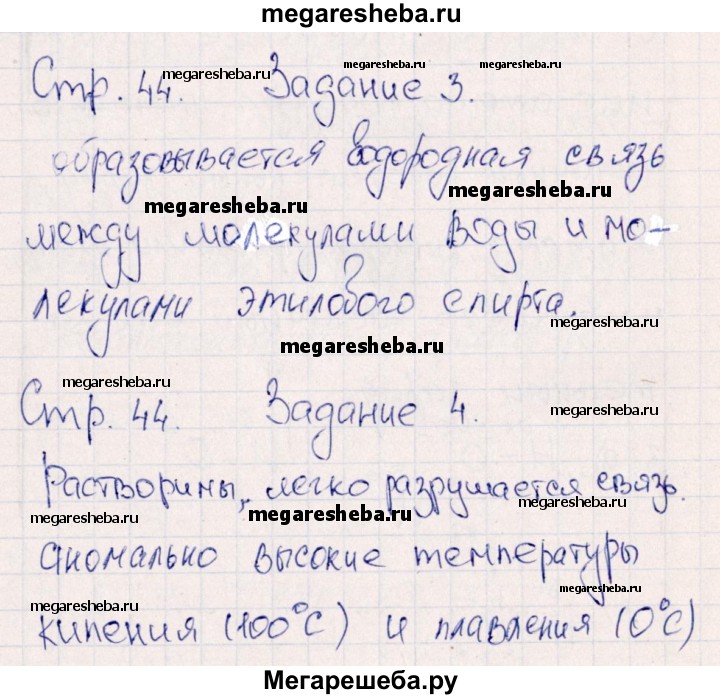 megaresheba.ru
Стр. 44. megaresheba.ru Задание 3. megaresheba.ru
образовывается водородная связь
megaresheba.ru megaresheba.ru
между молекулами воды и мо-
лекулами этилового спирта.
megaresheba.ru
megaresheba.ru
megaresheba.ru
Стр. 44. Задание 4. megaresheba.ru
Растворимы, легко разрушается связь.
megaresheba.ru megaresheba.ru megaresheba.ru
аномально высокие температуры
megaresheba.ru megaresheba.ru
кипения (100°С) и плавления (0°С)
Мегарешеба.ру